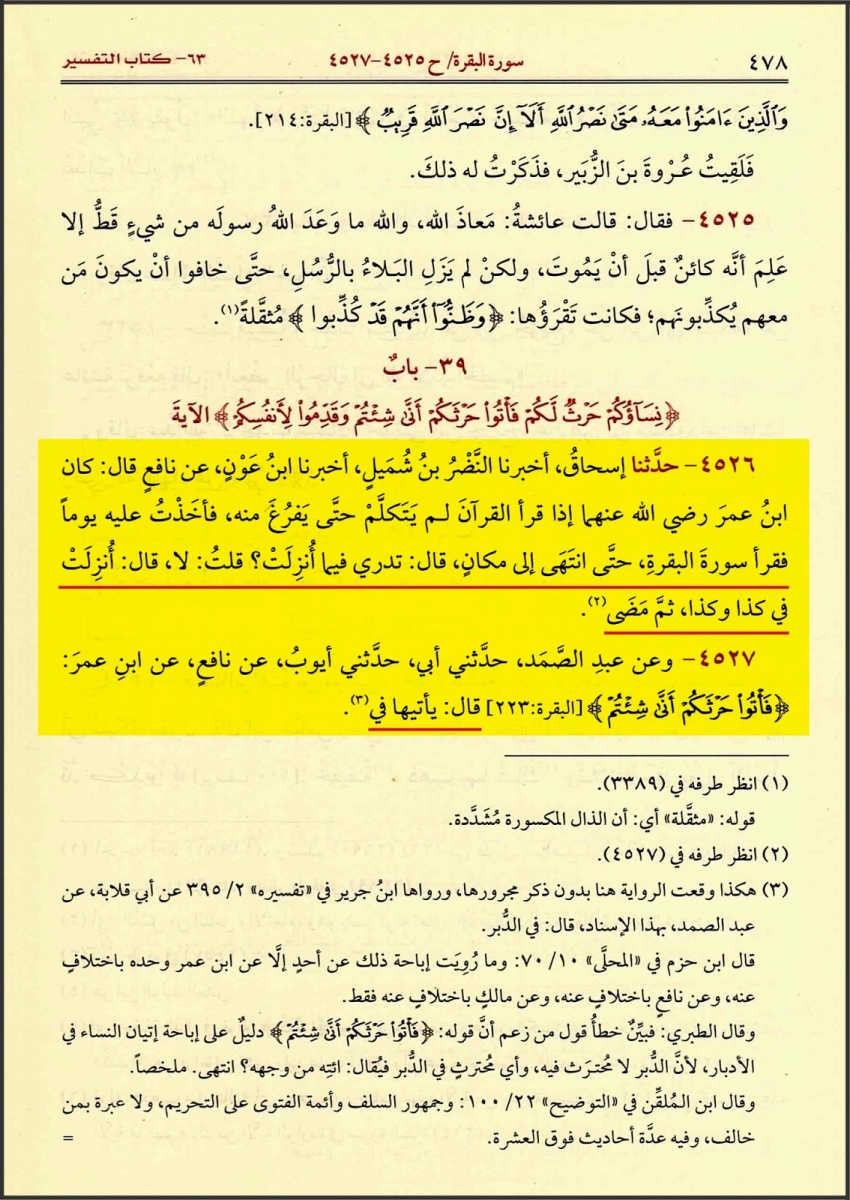 ٤٧٨ سورة البقرة/ ح ٤٥٢٥-٤٥٢٧ ٦٣- كتاب التفسير
وَٱلَّذِينَ ءَامَنُوا۟ مَعَهُۥ مَتَىٰ نَصْرُ ٱللَّهِ أَلَآ إِنَّ نَصْرَ ٱللَّهِ قَرِيبٌ ﴾ [البقرة:٢١٤].
فَلَقِيتُ عُرْوةَ بنَ الزُّبَير، فذَكَرْتُ له ذلكَ.
٤٥٢٥- فقال: قالت عائشةُ: مَعاذَ الله، والله ما وعَدَ اللهُ رسولَه من شيءٍ قَطُّ إلا
عَلِمَ أنَّه كائنٌ قبلَ أنْ يَمُوتَ، ولكنْ لم يَزَلِ البَلاءُ بالرُّسُلِ، حتَّى خافوا أنْ يكونَ مَن
معهم يُكذِّبونَهم؛ فكانت تَقْرَؤُها: ﴿وَظَنُّوٓا۟ أَنَّهُمْ قَدْ كُذِّبوا ﴾ مُثقَّلةً(١).
٣٩- بابٌ
﴿نِسَآؤُكُمْ حَرْثٌ لَّكُمْ فَأْتُوا۟ حَرْثَكُمْ أَنَّىٰ شِئْتُمْ وَقَدِّمُوا۟ لِأَنفُسِكُمْ﴾ الآيةَ
٤٥٢٦- حدَّثنا إسحاقُ، أخبرنا النَّضْرُ بنُ شُمَيلٍ، أخبرنا ابنُ عَوْنٍ، عن نافعٍ قال: كان
ابنُ عمرَ رضي الله عنهما إذا قرأ القرآنَ لـم يَتَكلَّمْ حتَّى يَفرُغَ منه، فأخَذْتُ عليه يوماً
فقرأ سورةَ البقرةِ، حتَّى انتَهَى إلى مكانٍ، قال: تدري فيما أُنزِلَتْ؟ قلتُ: لا، قال: أُنزِلَتْ
في كذا وكذا، ثمَّ مَضَى(٢).
٤٥٢٧- وعن عبدِ الصَّمَد، حدَّثني أبي، حدَّثني أيوبُ، عن نافعٍ، عن ابنِ عمرَ:
﴿فَأْتُوا۟ حَرْثَكُمْ أَنَّىٰ شِئْتُمْ﴾ [البقرة:٢٢٣] قال: يأتيها في(٣).
(١) انظر طرفه في (٣٣٨٩).
قوله: «مثقَّلة» أي: أن الذال المكسورة مُشَدَّدة.
(٢) انظر طرفه في (٤٥٢٧).
(٣) هكذا وقعت الرواية هنا بدون ذكر مجرورها، ورواها ابنُ جرير في «تفسيره» ٢/ ٣٩٥ عن أبي قلابة، عن
عبد الصمد، بهذا الإسناد، قال: في الدُّبر.
قال ابن حزم في «المحلَّى» ١٠/ ٧٠: وما رُوِيَت إباحة ذلك عن أحدٍ إلَّا عن ابن عمر وحده باختلافٍ
عنه، وعن نافعٍ باختلاف عنه، وعن مالكٍ باختلافٍ عنه فقط.
وقال الطبري: فبيِّنٌ خطأُ قول من زعم أنَّ قوله: ﴿فَأْتُوا۟ حَرْثَكُمْ أَنَّىٰ شِئْتُمْ﴾ دليلٌ على إباحة إتيان النساء في
الأدبار، لأنَّ الدُّبر لا مُحتَرَث فيه، وأي مُحترثٍ في الدُّبر فيُقال: ائتِه من وجهه؟ انتهى. ملخصاً.
وقال ابن المُلقِّن في «التوضيح» ٢٢/ ١٠٠: وجمهور السلف وأئمة الفتوى على التحريم، ولا عبرة بمن
خالف، وفيه عدَّة أحاديث فوق العشرة. =